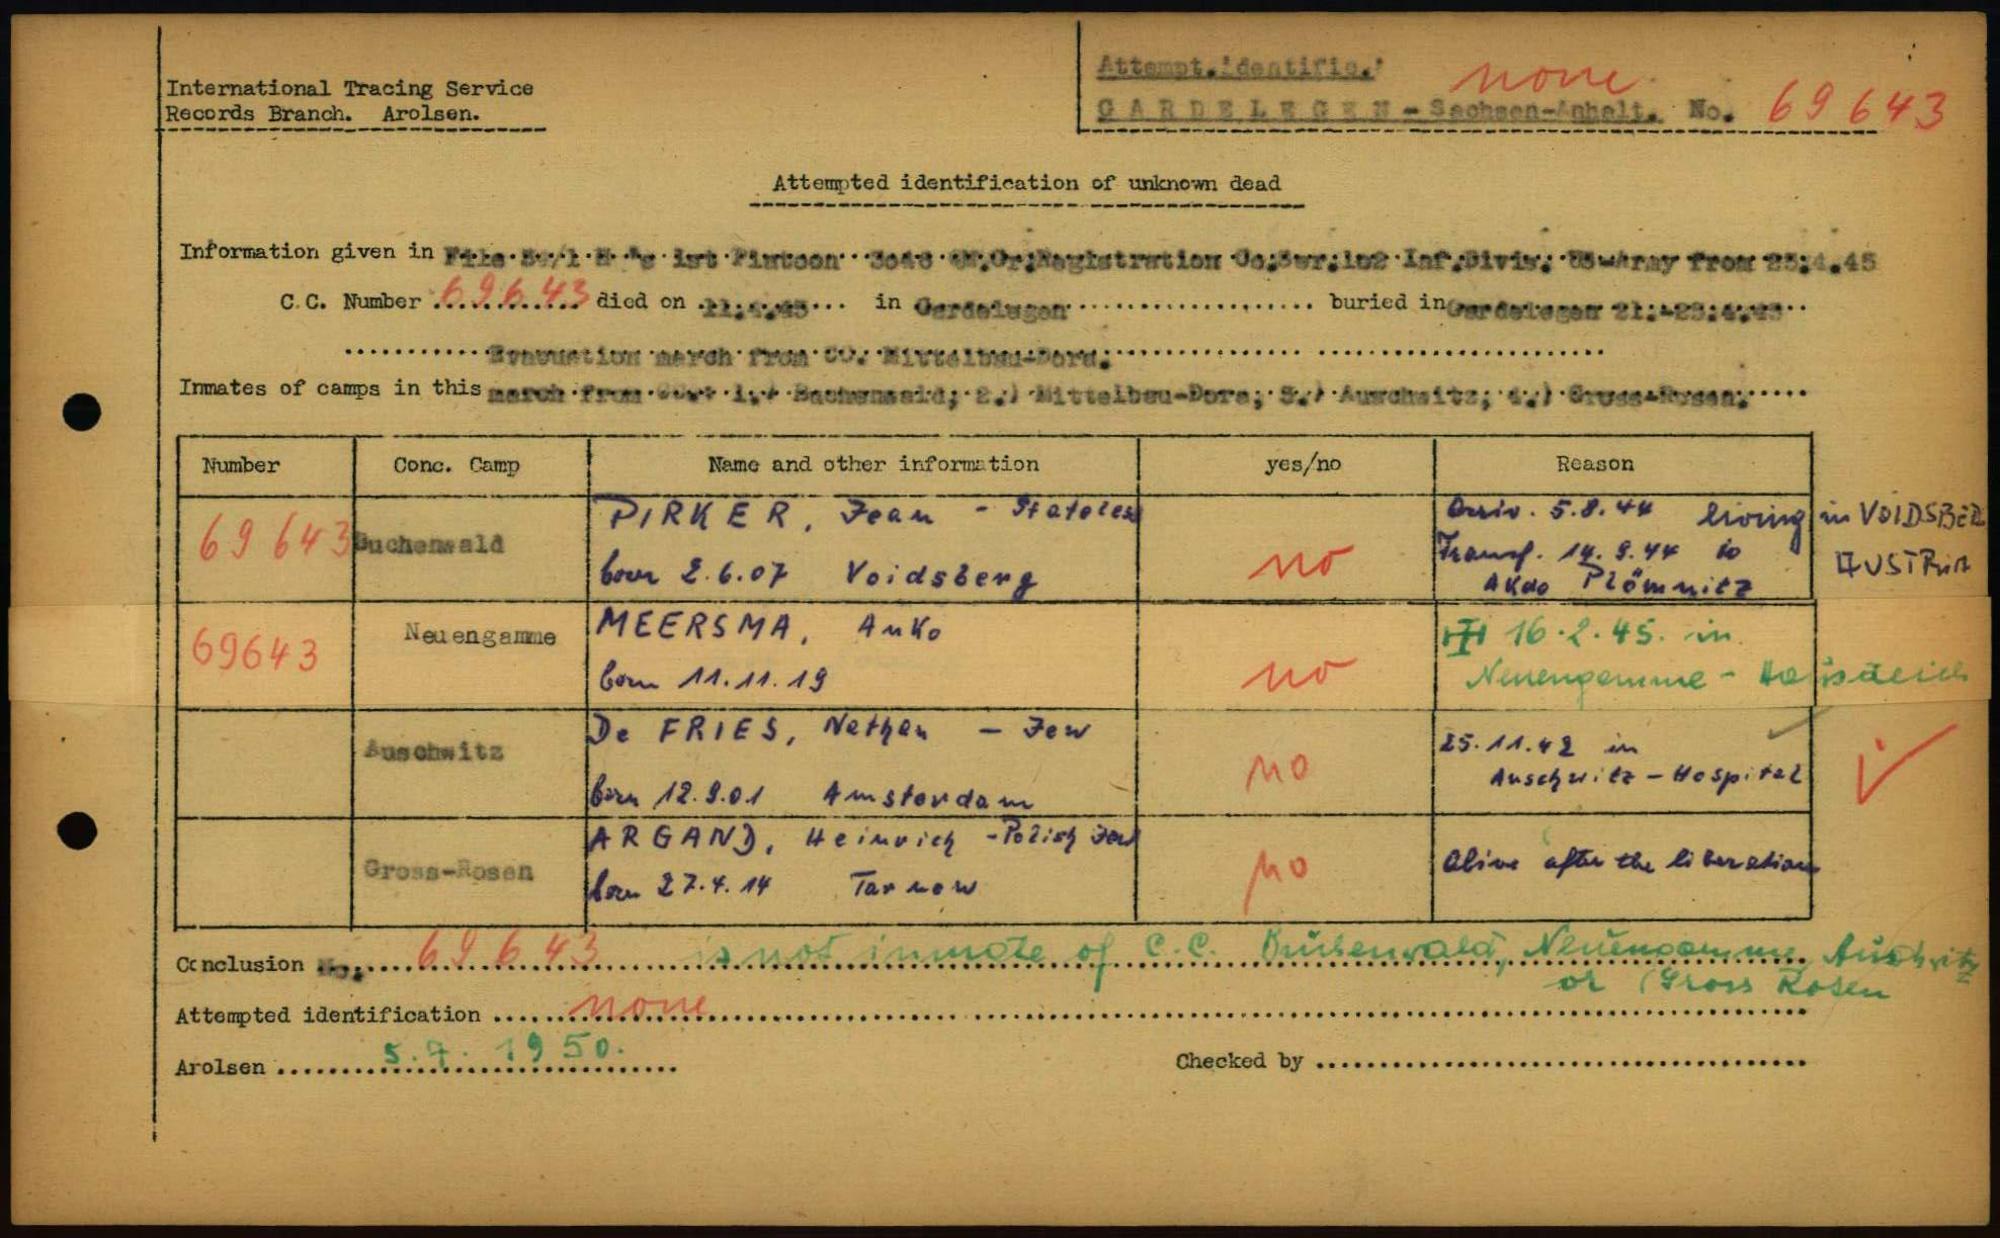 International Tracing Service
Records Branch. Arolsen.
Attempt. identific.
none
GARDELEGEN - Sachsen-Anhalt. No. 69643
Attempted identification of unknown dead
Information given in File 1st Platoon Gr. Registration Co. 102 Inf. Divis. US-Army from 25.4.45
C.C. Number 69643 died on in Gardelegen buried in Gardelegen
Evacuation march from CC. Mittelbau-Dora.
Inmates of camps in this march from 1.) Buchenwald; 2.) Mittelbau-Dora; 3.) Auschwitz; 4.) Gross-Rosen.
Number Conc. Camp Name and other information yes/no Reason
69643 Buchenwald PIRKER, Jean - Stateless
born 2.6.07 Voidsberg
no
Arriv. 5.8.44 living in VOIDSBERG
Transf. 14.9.44 to AUSTRIA
AKdo Plömnitz
69643 Neuengamme MEERSMA, Anko
born 11.11.19
no
16.2.45. in
Neuengamme -
Auschwitz De FRIES, Nathan - Jew
born 12.9.01 Amsterdam
no
25.11.42 in
Auschwitz - Hospital
Gross-Rosen ARGAND, Heinrich - Polish Jew
born 27.4.14 Tarnow
no
Alive after the liberation
Conclusion No. 69643 is not inmate of C.C. Buchenwald, Neuengamme, Auschwitz
or Gross Rosen
Attempted identification none
Arolsen 5.7.1950.
Checked by